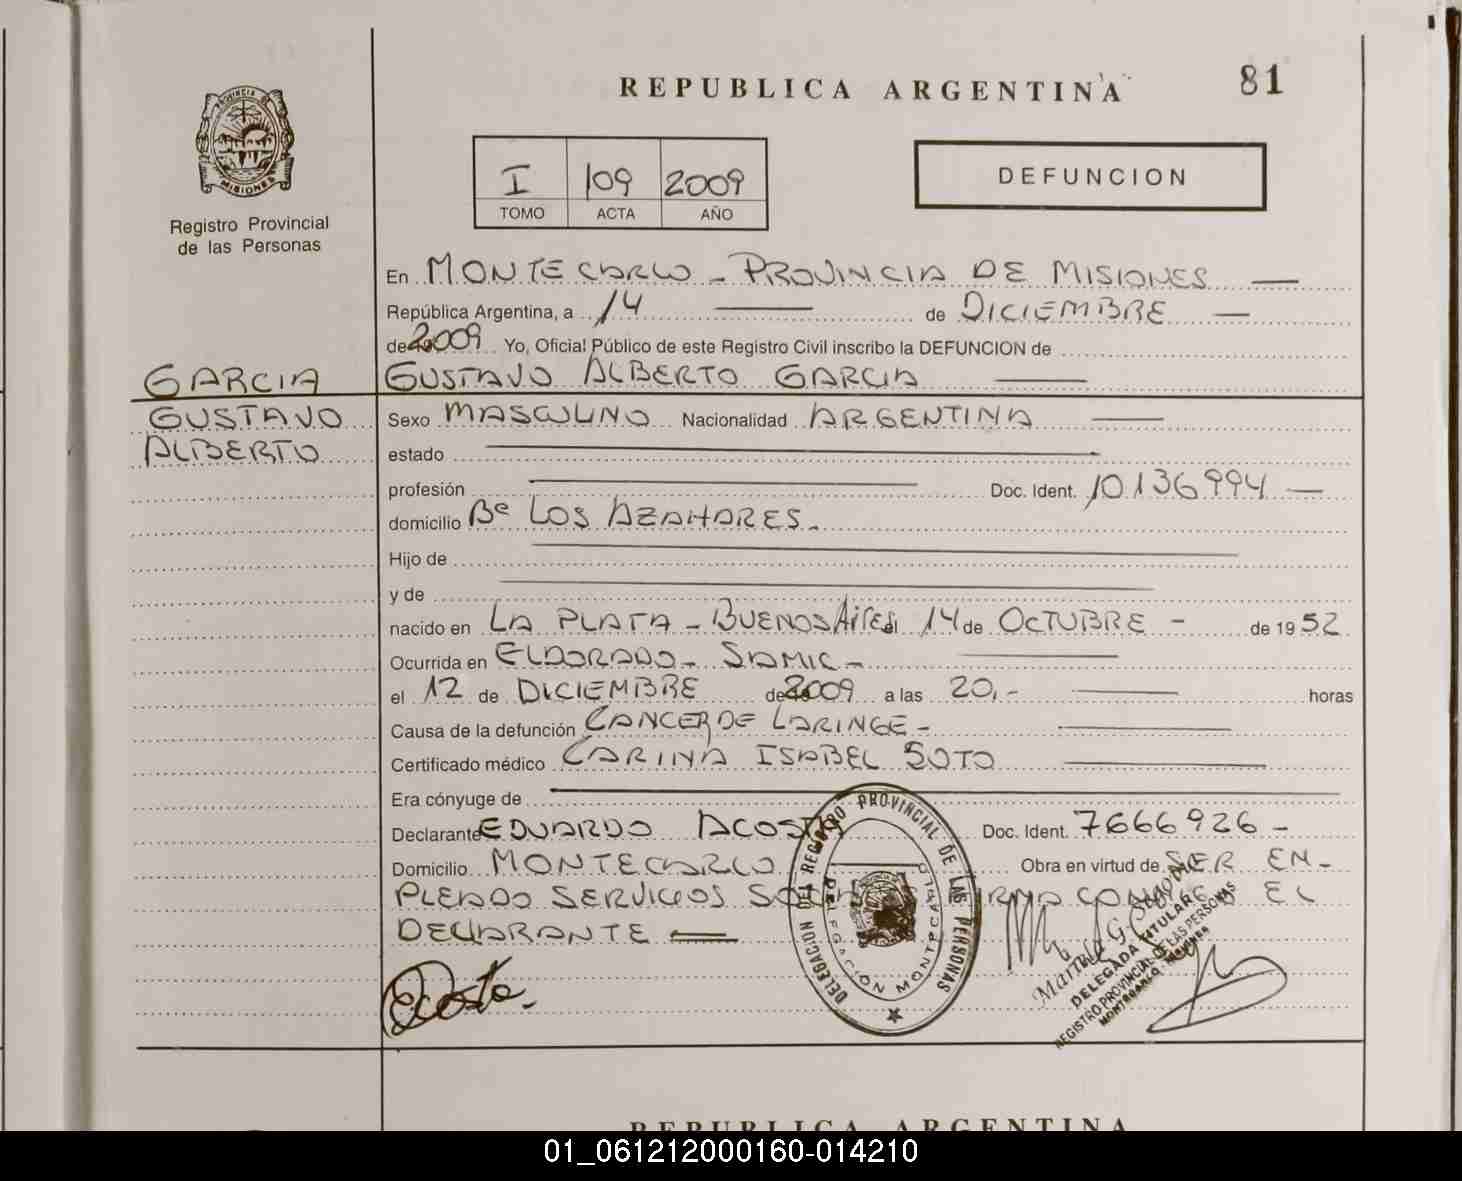 REPUBLICA ARGENTINA
81
PROVINCIA DE
MISIONES
Registro Provincial
de las Personas
I 109 2009
TOMO ACTA AÑO
DEFUNCION
En MONTECARLO - PROVINCIA DE MISIONES
República Argentina, a 14 de DICIEMBRE
de 2009 Yo, Oficial Público de este Registro Civil inscribo la DEFUNCION de
GARCIA
GUSTAVO ALBERTO GARCIA
GUSTAVO
ALBERTO
Sexo MASCULINO Nacionalidad ARGENTINA
estado
profesión Doc. Ident. 10136994
domicilio Bº LOS AZAHARES.
Hijo de
y de
nacido en LA PLATA - BUENOS AIRES 14 de OCTUBRE - de 1952
Ocurrida en ELDORADO - SAMIC -
el 12 de DICIEMBRE de 2009 a las 20,- horas
Causa de la defunción CANCER DE LARINGE -
Certificado médico CARINA ISABEL SOTO
Era cónyuge de
Declarante EDUARDO ACOSTA Doc. Ident. 7666926 -
Domicilio MONTECARLO Obra en virtud de SER EM-
PLEADO SERVICIOS FIRMA CONMIGO EL
DECLARANTE
DELEGACION DEL REGISTRO PROVINCIAL DE LAS PERSONAS
DELEGACION MONTECARLO
DELEGADA TITULAR
REGISTRO PROVINCIAL DE LAS PERSONAS
MONTECARLO - MISIONES
REPUBLICA ARGENTINA
01_061212000160-014210